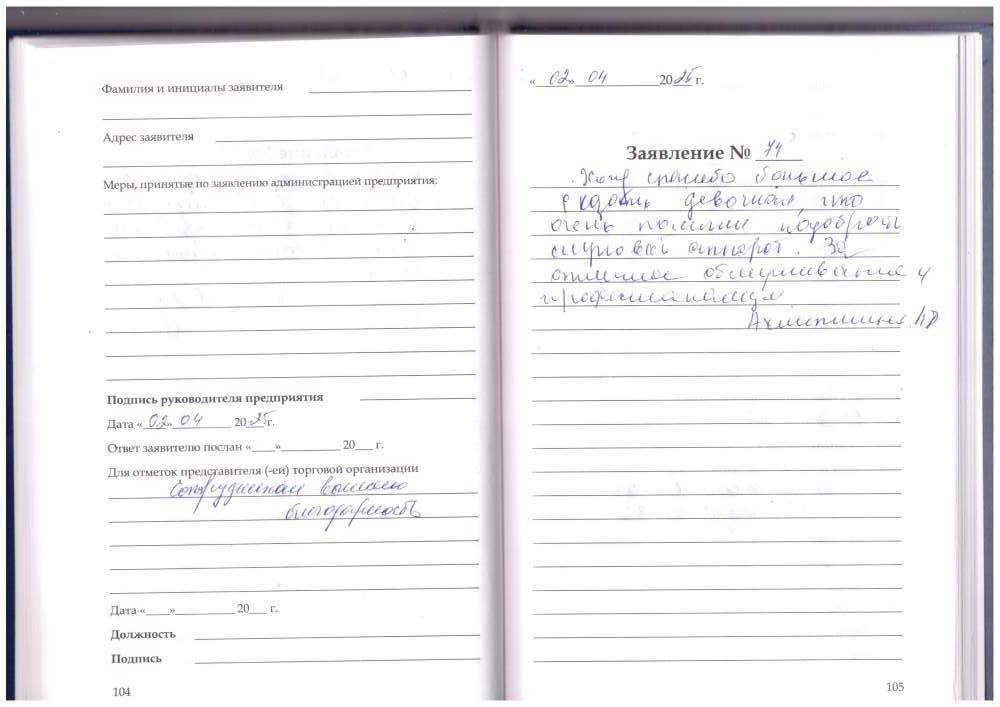 Фамилия и инициалы заявителя
Адрес заявителя
Меры, принятые по заявлению администрацией предприятия:
Подпись руководителя предприятия
Дата «02» 04 2025г.
Ответ заявителю послан «____»__________ 20___ г.
Для отметок представителя (-ей) торговой организации
Сотрудникам
благодарность
Дата «____»__________ 20___ г.
Должность
Подпись
104
«02» 04 2025 г.
Заявление № 74
Хочу спасибо большое
сказать девочкам, что
очень помогли подобрать
слуховой аппарат. За
отличное обслуживание и
105